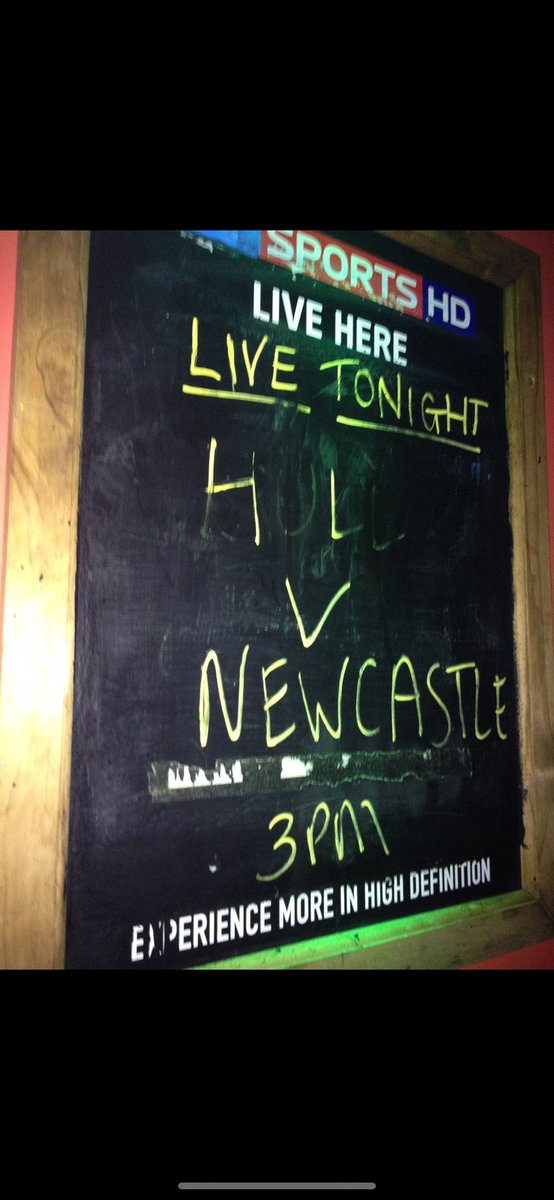 SPORTS HD
LIVE HERE
LIVE TONIGHT
HULL
V
NEWCASTLE
3PM
EXPERIENCE MORE IN HIGH DEFINITION